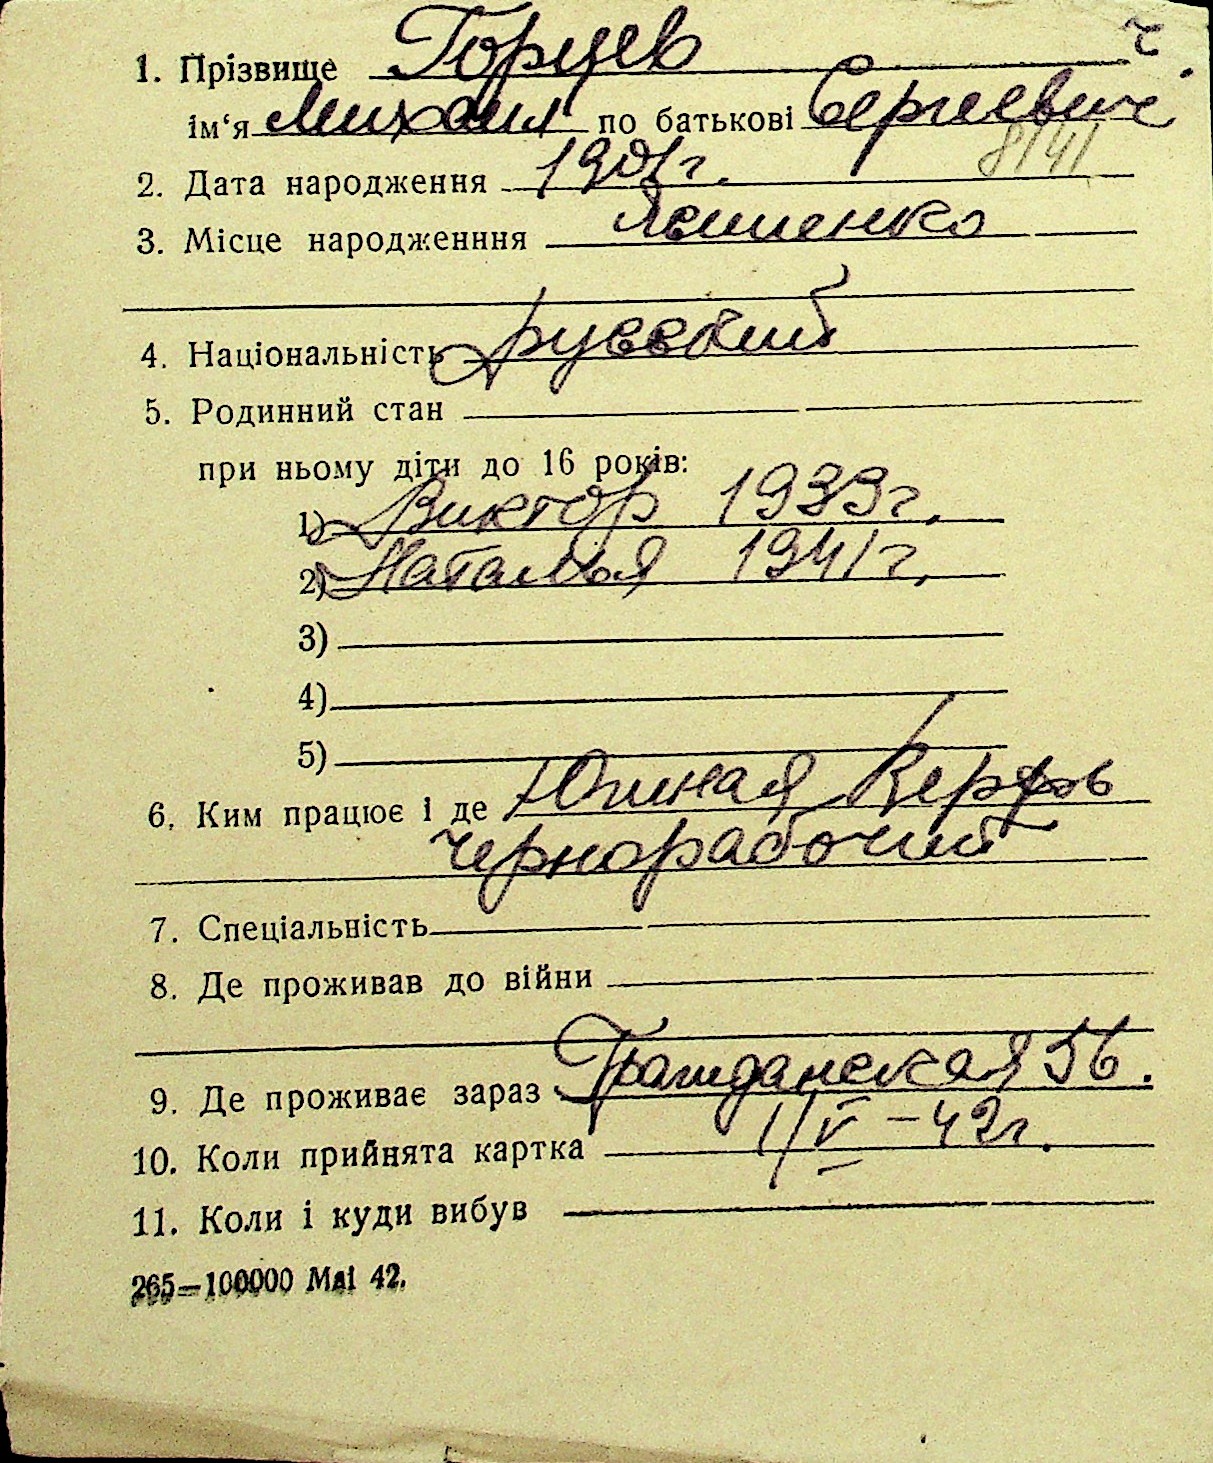 ч.
1. Прізвище Горцев
ім‘я Михаил по батькові Сергиевич
8/41
2. Дата народження 1901г.
3. Місце народженння
4. Національність русский
5. Родинний стан
при ньому діти до 16 років:
1) Виктор 1933г.
2) Наталья 1941г.
3)
4)
5)
6. Ким працює і де Южная Верфь
чернорабочий
7. Спеціальність
8. Де проживав до війни
9. Де проживає зараз Гражданская 56.
10. Коли прийнята картка 1/V – 42г.
11. Коли і куди вибув
265=100000 Маі 42.